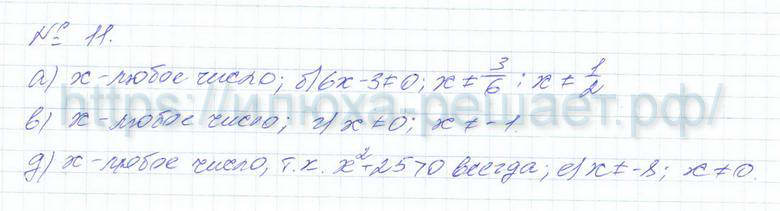 № 11.
а) x - любое число; б) 6x - 3 ≠ 0; x ≠ 3/6; x ≠ 1/2
https://илюха-решает.рф/
в) x - любое число; г) x ≠ 0; x ≠ -1.
д) x - любое число, т.к. x² + 25 > 0 всегда; е) x ≠ -8; x ≠ 0.